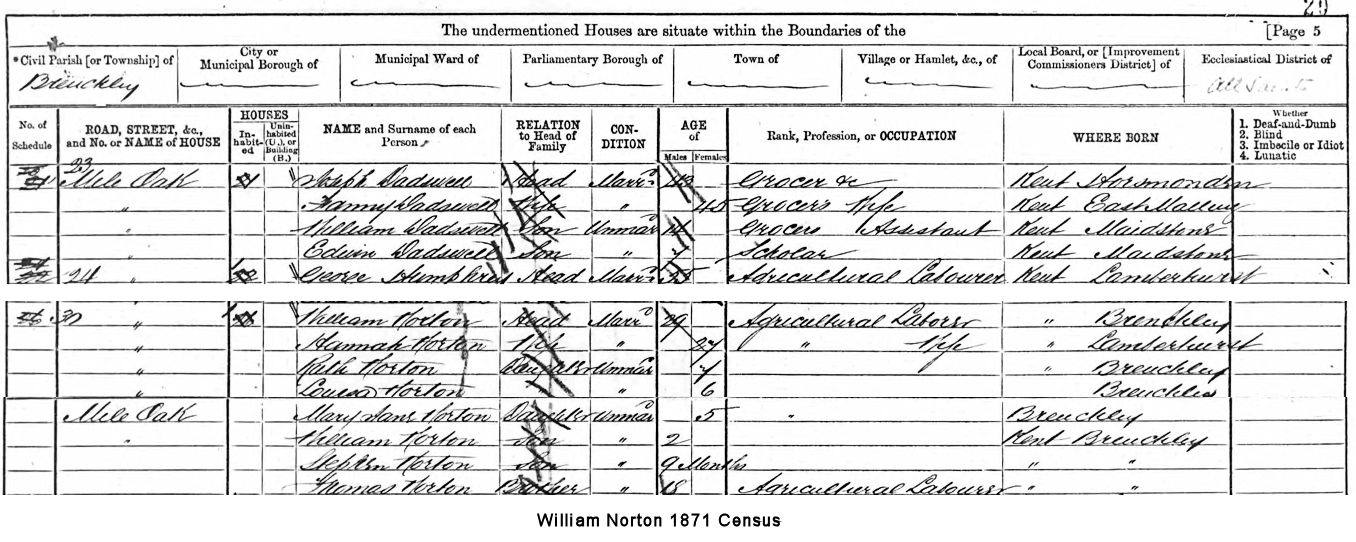 29
The undermentioned Houses are situate within the Boundaries of the [Page 5
*Civil Parish [or Township] of
City or Municipal Borough of
Municipal Ward of
Parliamentary Borough of
Town of
Village or Hamlet, &c., of
Local Board, or [Improvement Commissioners District] of
Ecclesiastical District of
Brenchley All Saints
No. of Schedule
ROAD, STREET, &c., and No. or NAME of HOUSE
HOUSES
In-habit-ed
Unin-habited (U.), or Building (B.)
NAME and Surname of each Person
RELATION to Head of Family
CON-DITION
AGE of
Males Females
Rank, Profession, or OCCUPATION
WHERE BORN
Whether
1. Deaf-and-Dumb
2. Blind
3. Imbecile or Idiot
4. Lunatic
23 Mile Oak 1 Joseph Dadswell Head Marrd 43 Grocer &c Kent Horsmonden
" Fanny Dadswell Wife " 45 Grocers Wife Kent East Malling
" William Dadswell Son Unmar 14 Grocers Assistant Kent Maidstone
" Edwin Dadswell Son " Scholar Kent Maidstone
24 " 1 George Humphrey Head Marrd 35 Agricultural Labourer Kent Lamberhurst
30 " 1 William Horton Head Marrd 29 Agricultural Laborer " Brenchley
" Hannah Horton Wife " 27 " Wife " Lamberhurst
" Kath Horton Daughter Unmar 7 " Brenchley
" Louisa Horton " 6 Brenchley
Mile Oak Mary Jane Horton Daughter Unmar 5 " Brenchley
" William Horton Son " 2 Kent Brenchley
Stephen Horton Son " 9 Months " "
Thomas Horton Brother " 18 Agricultural Labourer " "
William Norton 1871 Census